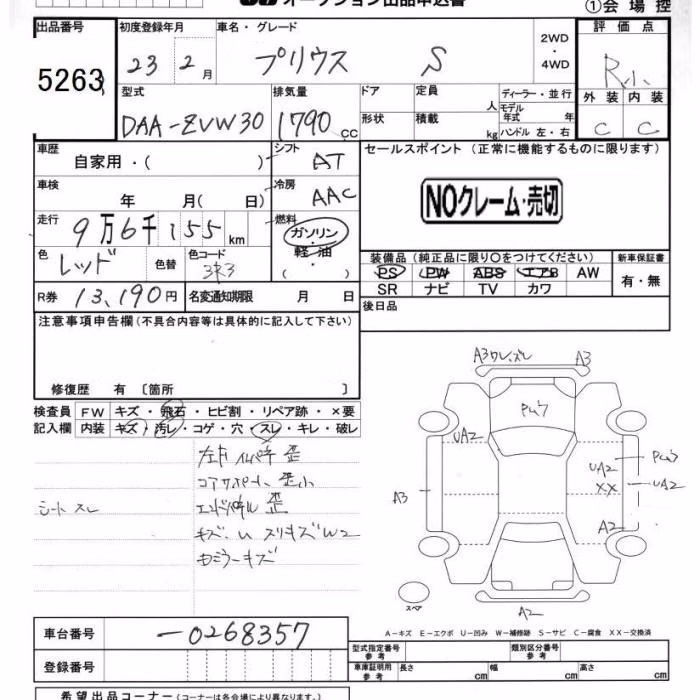 オークション出品申込書
①会場控
出品番号 初度登録年月 車名・グレード 2WD・4WD 評価点
5263 23年2月 プリウス S R小
外装 内装
C C
型式 排気量 ドア 定員 ディーラー・並行
人 モデル年式 年
DAA-ZVW30 1790cc 形状 積載 kg ハンドル 左・右
車歴 シフト セールスポイント(正常に機能するものに限ります)
自家用・( ) AT
NOクレーム・売切
車検 冷房
年 月(日) AAC
走行 9万6千155km 燃料 ガソリン・軽油・( )
色 レッド 色替 色コード 3R3
装備品(純正品に限り○をつけてください) 新車保証書
PS PW ABS エアB AW 有・無
SR ナビ TV カワ
R券 13,190円 名変通知期限 月 日
後日品
注意事項申告欄(不具合内容等は具体的に記入して下さい)
修復歴 有 〔箇所 〕
検査員 FW キズ・飛石・ヒビ割・リペア跡・×要
記入欄 内装 キズ・汚レ・コゲ・穴・スレ・キレ・破レ
コアサポート、歪小
シート スレ
エンドパネル 歪
キズ.U スリキズW2
右ミラーキズ
A3ワレ.ズレ A3
Pw7
UA2
Pw3
UA2
UA2
XX
A3
A2
スペア
A2
A-キズ E-エクボ U-凹み W-補修跡 S-サビ C-腐食 XX-交換済
車台番号 -0268357
型式指定番号 参考 類別区分番号 参考
登録番号
車庫証明用 参考 長さ cm 幅 cm 高さ cm
希望出品コーナー(コーナーは各会場により異なります。)